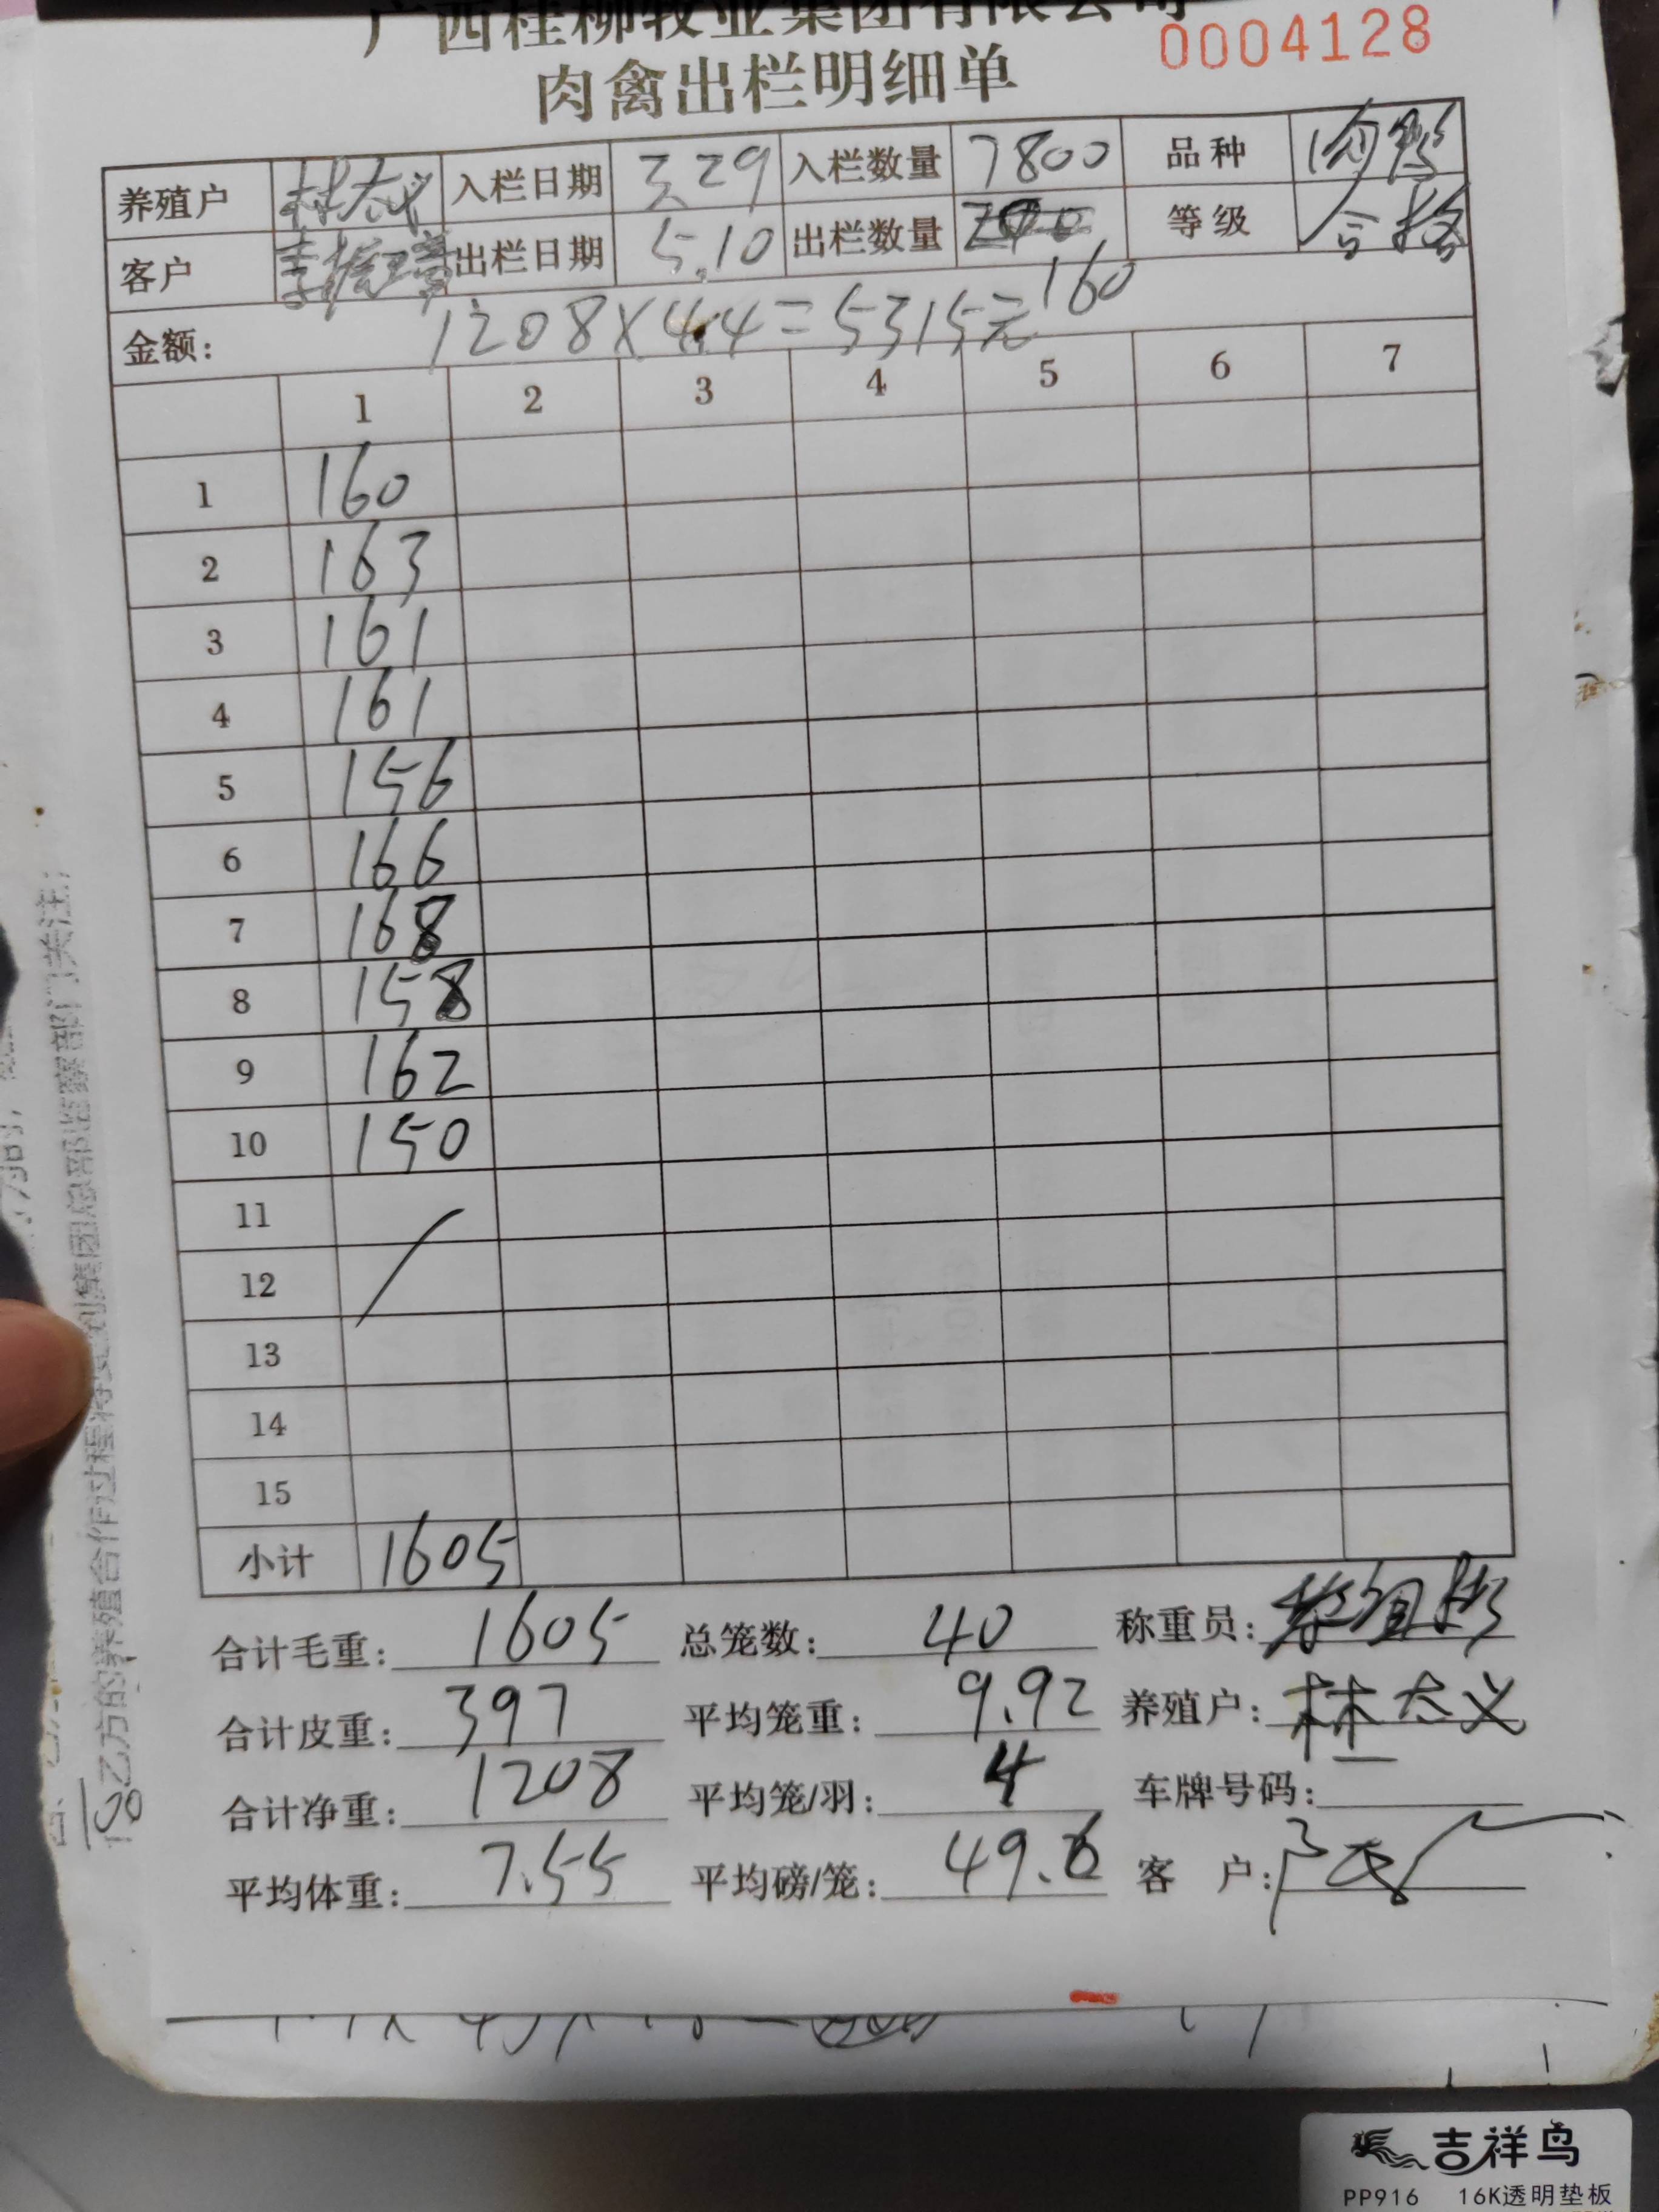 广西桂柳牧业集团有限公司
0004128
肉禽出栏明细单
养殖户 林太义 入栏日期 3.29 入栏数量 7800 品种
客户 出栏日期 5.10 出栏数量 160 等级 合格
金额: 1208×4.4=5315元
1 2 3 4 5 6 7
1 160
2 163
3 161
4 161
5 156
6 166
7 168
8 158
9 162
10 150
11
12
13
14
15
小计 1605
合计毛重: 1605 总笼数: 40 称重员:
合计皮重: 397 平均笼重: 9.92 养殖户: 林太义
合计净重: 1208 平均笼/羽: 4 车牌号码:
平均体重: 7.55 平均磅/笼: 49.6 客 户:
乙方的养殖合作过程将受到集团总部监察部门关注;
吉祥鸟
PP916 16K透明垫板